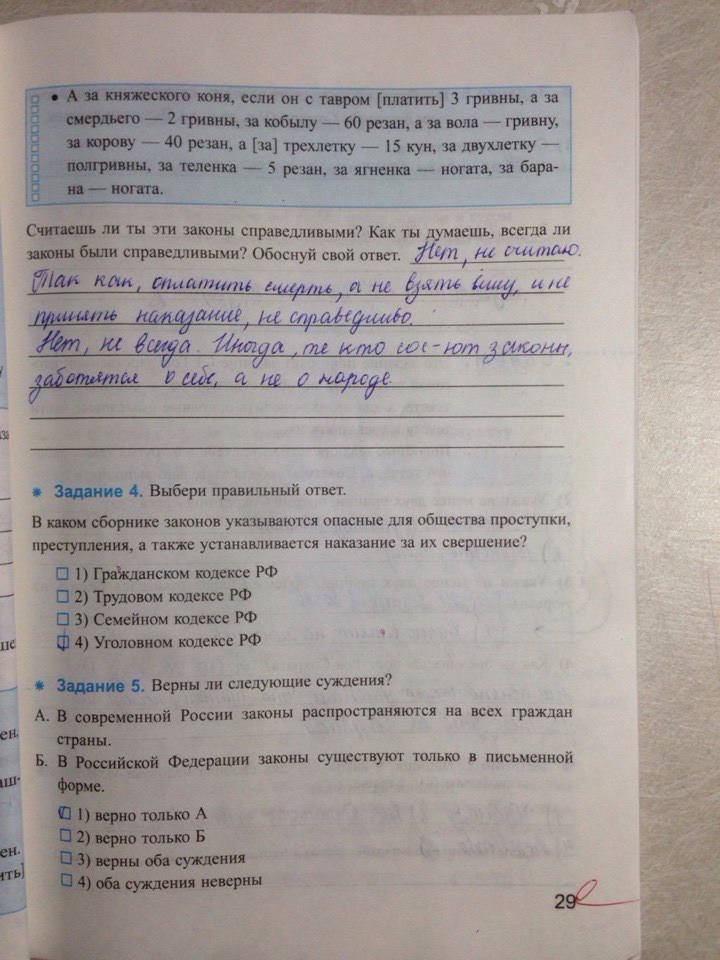 • А за княжеского коня, если он с тавром [платить] 3 гривны, а за
смердьего — 2 гривны, за кобылу — 60 резан, а за вола — гривну,
за корову — 40 резан, а [за] трехлетку — 15 кун, за двухлетку —
полгривны, за теленка — 5 резан, за ягненка — ногата, за бара-
на — ногата.
Считаешь ли ты эти законы справедливыми? Как ты думаешь, всегда ли
законы были справедливыми? Обоснуй свой ответ. Нет, не считаю.
Так как, оплатить смерть, а не взять вину, и не
принять наказание, не справедливо.
Нет, не всегда. Иногда, те кто сос-ют законы,
заботятся о себе, а не о народе.
* Задание 4. Выбери правильный ответ.
В каком сборнике законов указываются опасные для общества проступки,
преступления, а также устанавливается наказание за их свершение?
1) Гражданском кодексе РФ
2) Трудовом кодексе РФ
3) Семейном кодексе РФ
4) Уголовном кодексе РФ
* Задание 5. Верны ли следующие суждения?
А. В современной России законы распространяются на всех граждан
страны.
Б. В Российской Федерации законы существуют только в письменной
форме.
1) верно только А
2) верно только Б
3) верны оба суждения
4) оба суждения неверны
29